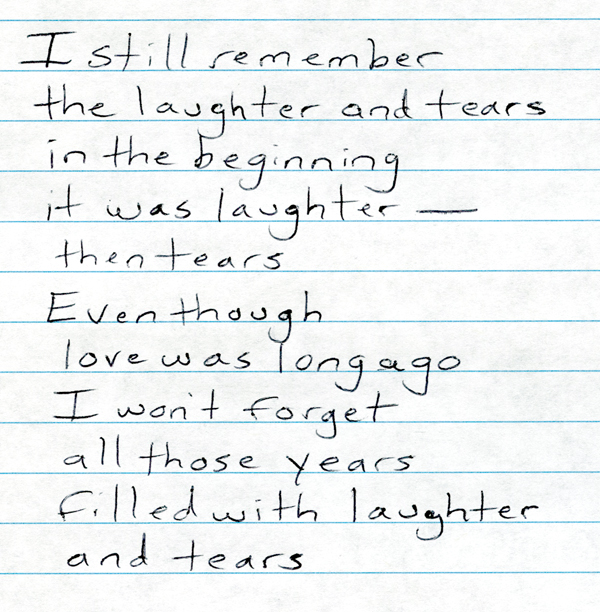 I still remember
the laughter and tears
in the beginning
it was laughter —
then tears
Even though
love was long ago
I won't forget
all those years
filled with laughter
and tears